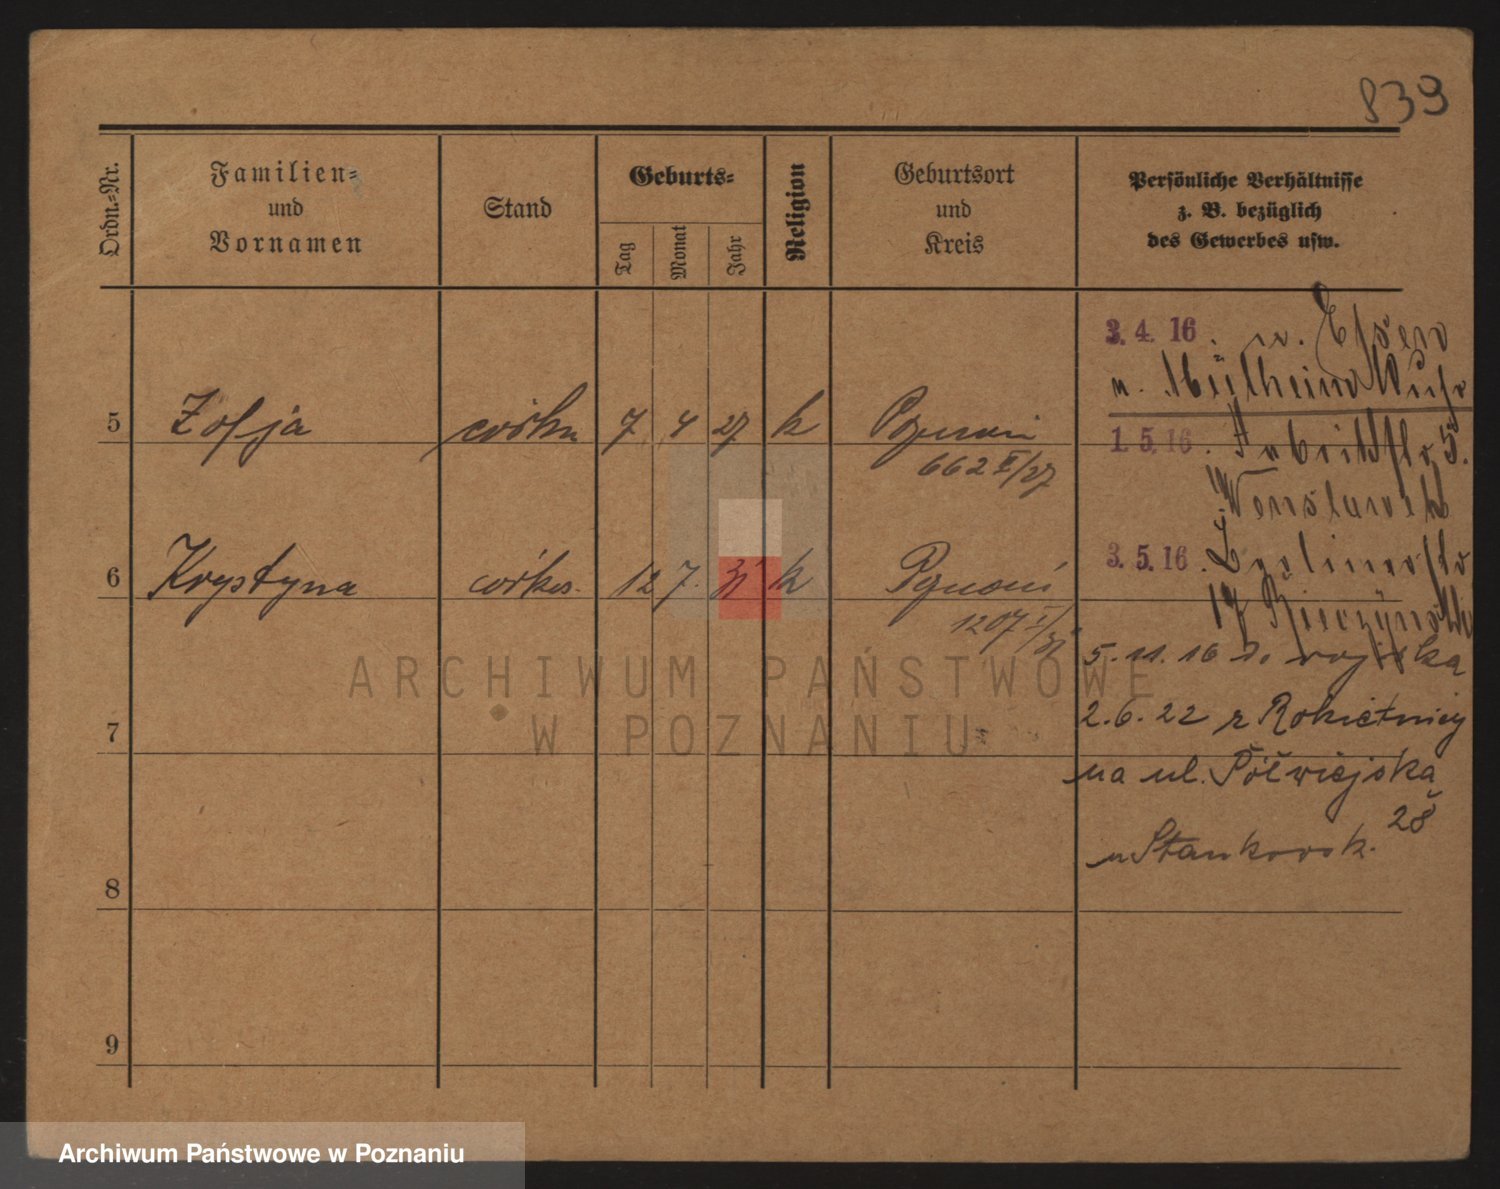 839
Ordn.-Nr.
Familien-
und
Vornamen
Stand
Geburts-
Tag
Monat
Jahr
Religion
Geburtsort
und
Kreis
Persönliche Verhältnisse
z. B. bezüglich
des Gewerbes usw.
3. 4. 16. v. Essen
u. Mülheim Ruhr
5 Zofja córka 7 4 27 k Poznań
662 II/27
1. 5. 16.
6 Krystyna córka 12 7. 31 k Poznań
1207 I/31
3. 5. 16.
5. 11. 16 do wojska
7
2. 6. 22 z Rokietnicy
na ul. Półwiejska
28
u Stankowsk.
8
9
ARCHIWUM PAŃSTWOWE
W POZNANIU
Archiwum Państwowe w Poznaniu